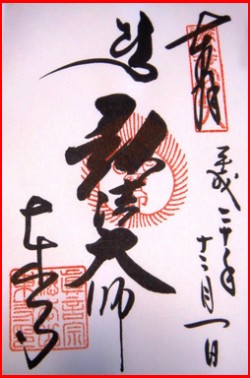 奉拝
平成二十年
十二月一日
弘法大師
東寺